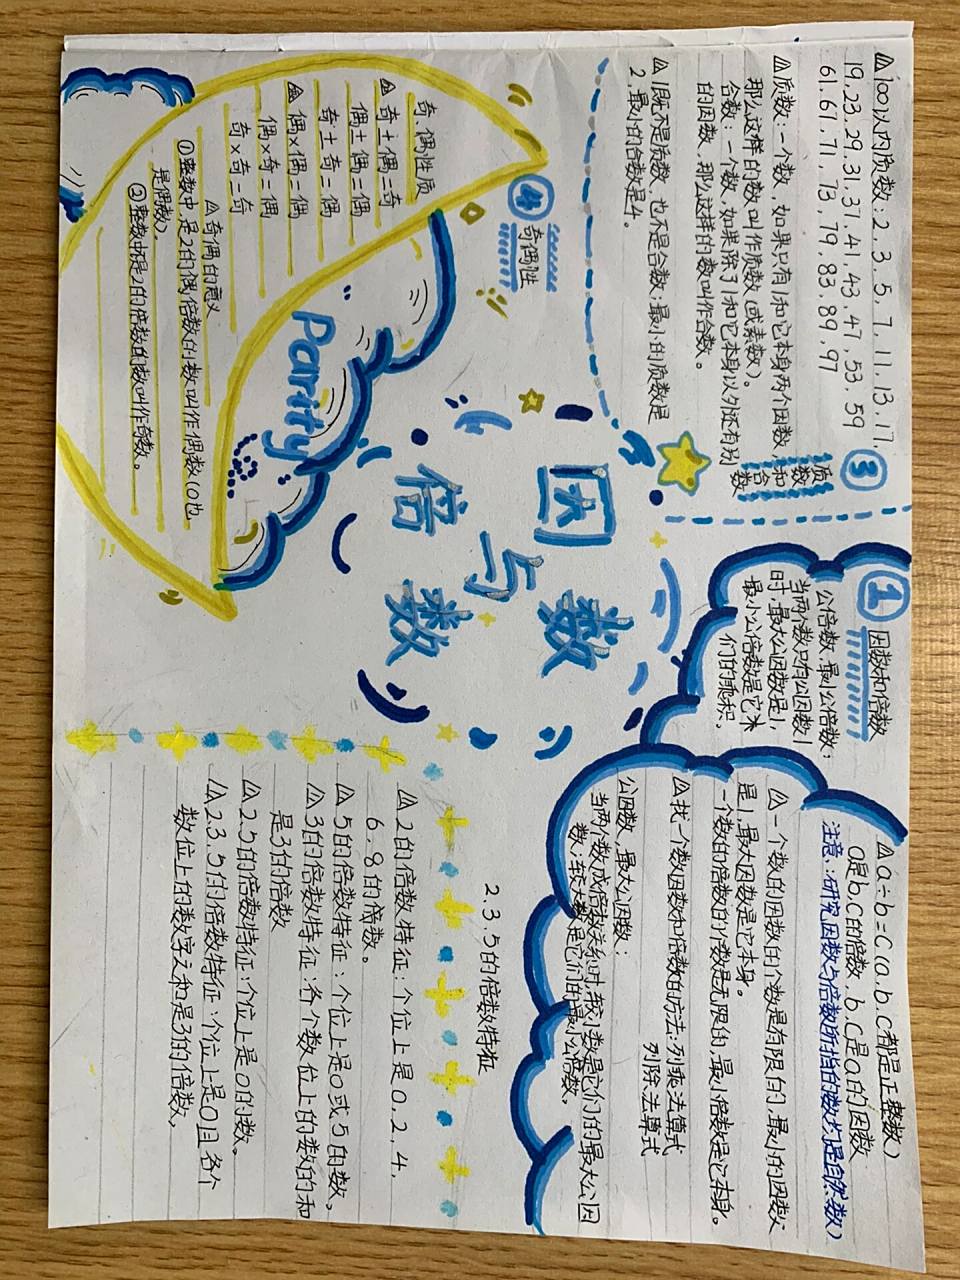 因数
与
倍数
① 因数和倍数
△a÷b=c(a.b.c都是正整数)
a是b.c的倍数.b.c是a的因数
注意:研究因数与倍数所指的数均是自然数)
△一个数的因数的个数是有限的,最小的因数
是1,最大因数是它本身。
一个数的倍数的个数是无限的,最小倍数是它本身。
△找一个数因数和倍数的方法:列乘法算式
列除法算式
公因数,最大公因数:
当两个数成倍数关系时,较小数是它们的最大公因
数;较大数是它们的最小公倍数,
公倍数,最小公倍数:
当两个数只有公因数1
时,最大公因数是1,
最小公倍数是它
们的乘积.
2.3.5的倍数特征
△2的倍数特征:个位上是0.2.4.
6.8的倍数。
△5的倍数特征:个位上是0或5的数。
△3的倍数特征:各个数位上的数的和
是3的倍数
△2.5的倍数特征:个位上是0的数。
△2.3.5的倍数特征:个位上是0且各个
数位上的数字之和是3的倍数,
③ 质数和合数
△100以内质数:2.3.5.7.11.13.17.
19.23.29.31.37.41.43.47.53.59
61.67.71.73.79.83.89.97
△质数:一个数,如果只有1和它本身两个因数,
那么这样的数叫作质数(或素数)。
合数:一个数,如果除了1和它本身以外还有别
的因数,那么这样的数叫作合数。
△1既不是质数,也不是合数;最小的质数是
2,最小的合数是4。
④ 奇偶性
奇.偶性质
△奇+偶=奇
偶±偶=偶
奇±奇=偶
△偶×偶=偶
偶×奇=偶
奇×奇=奇
△奇偶的意义
①整数中,是2的偶倍数的数叫作偶数(0也
是偶数)。
②整数中不是2的倍数的数叫作奇数。
Parity